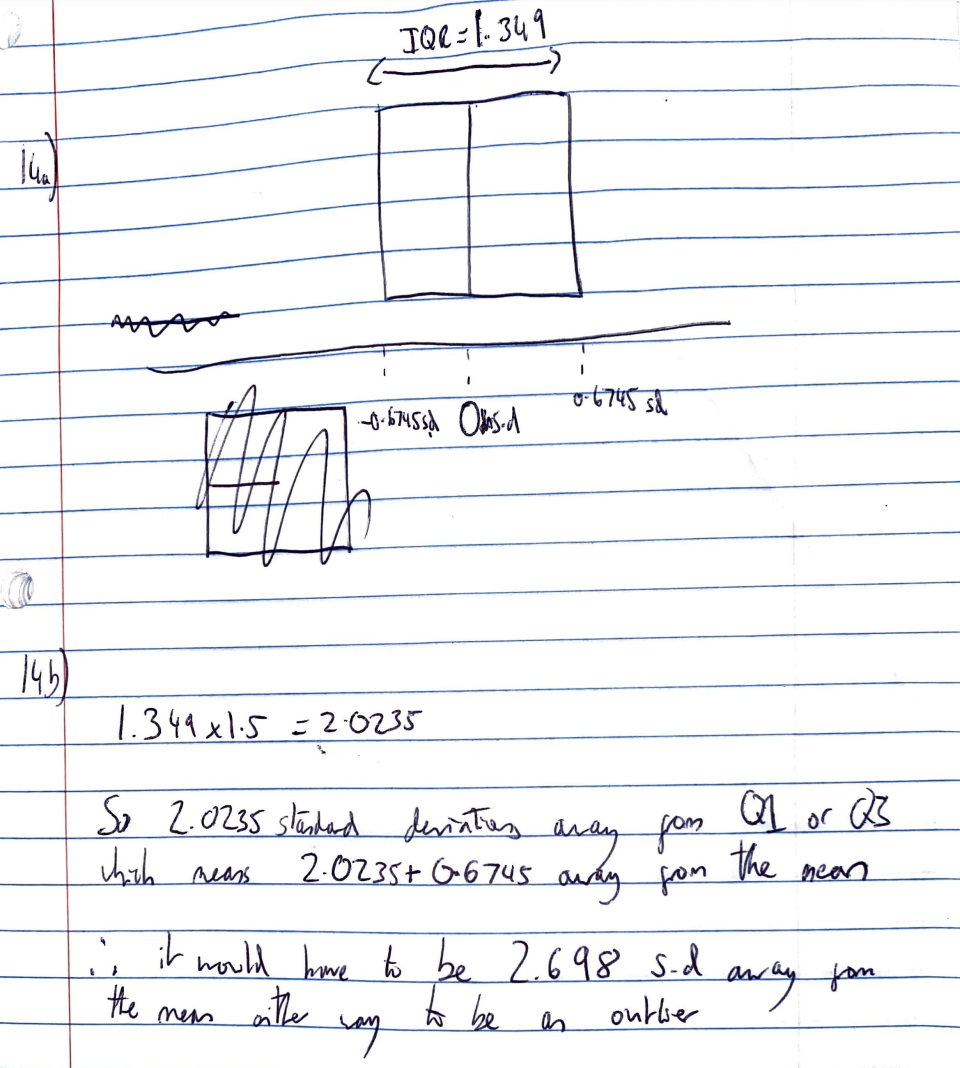 IQR = 1.349
14a)
-0.6745sd 0 s.d 0.6745 sd
14b)
1.349 x 1.5 = 2.0235
So 2.0235 standard deviations away from Q1 or Q3
which means 2.0235 + 0.6745 away from the mean
∴ it would have to be 2.698 s.d away from
the mean either way to be an outlier